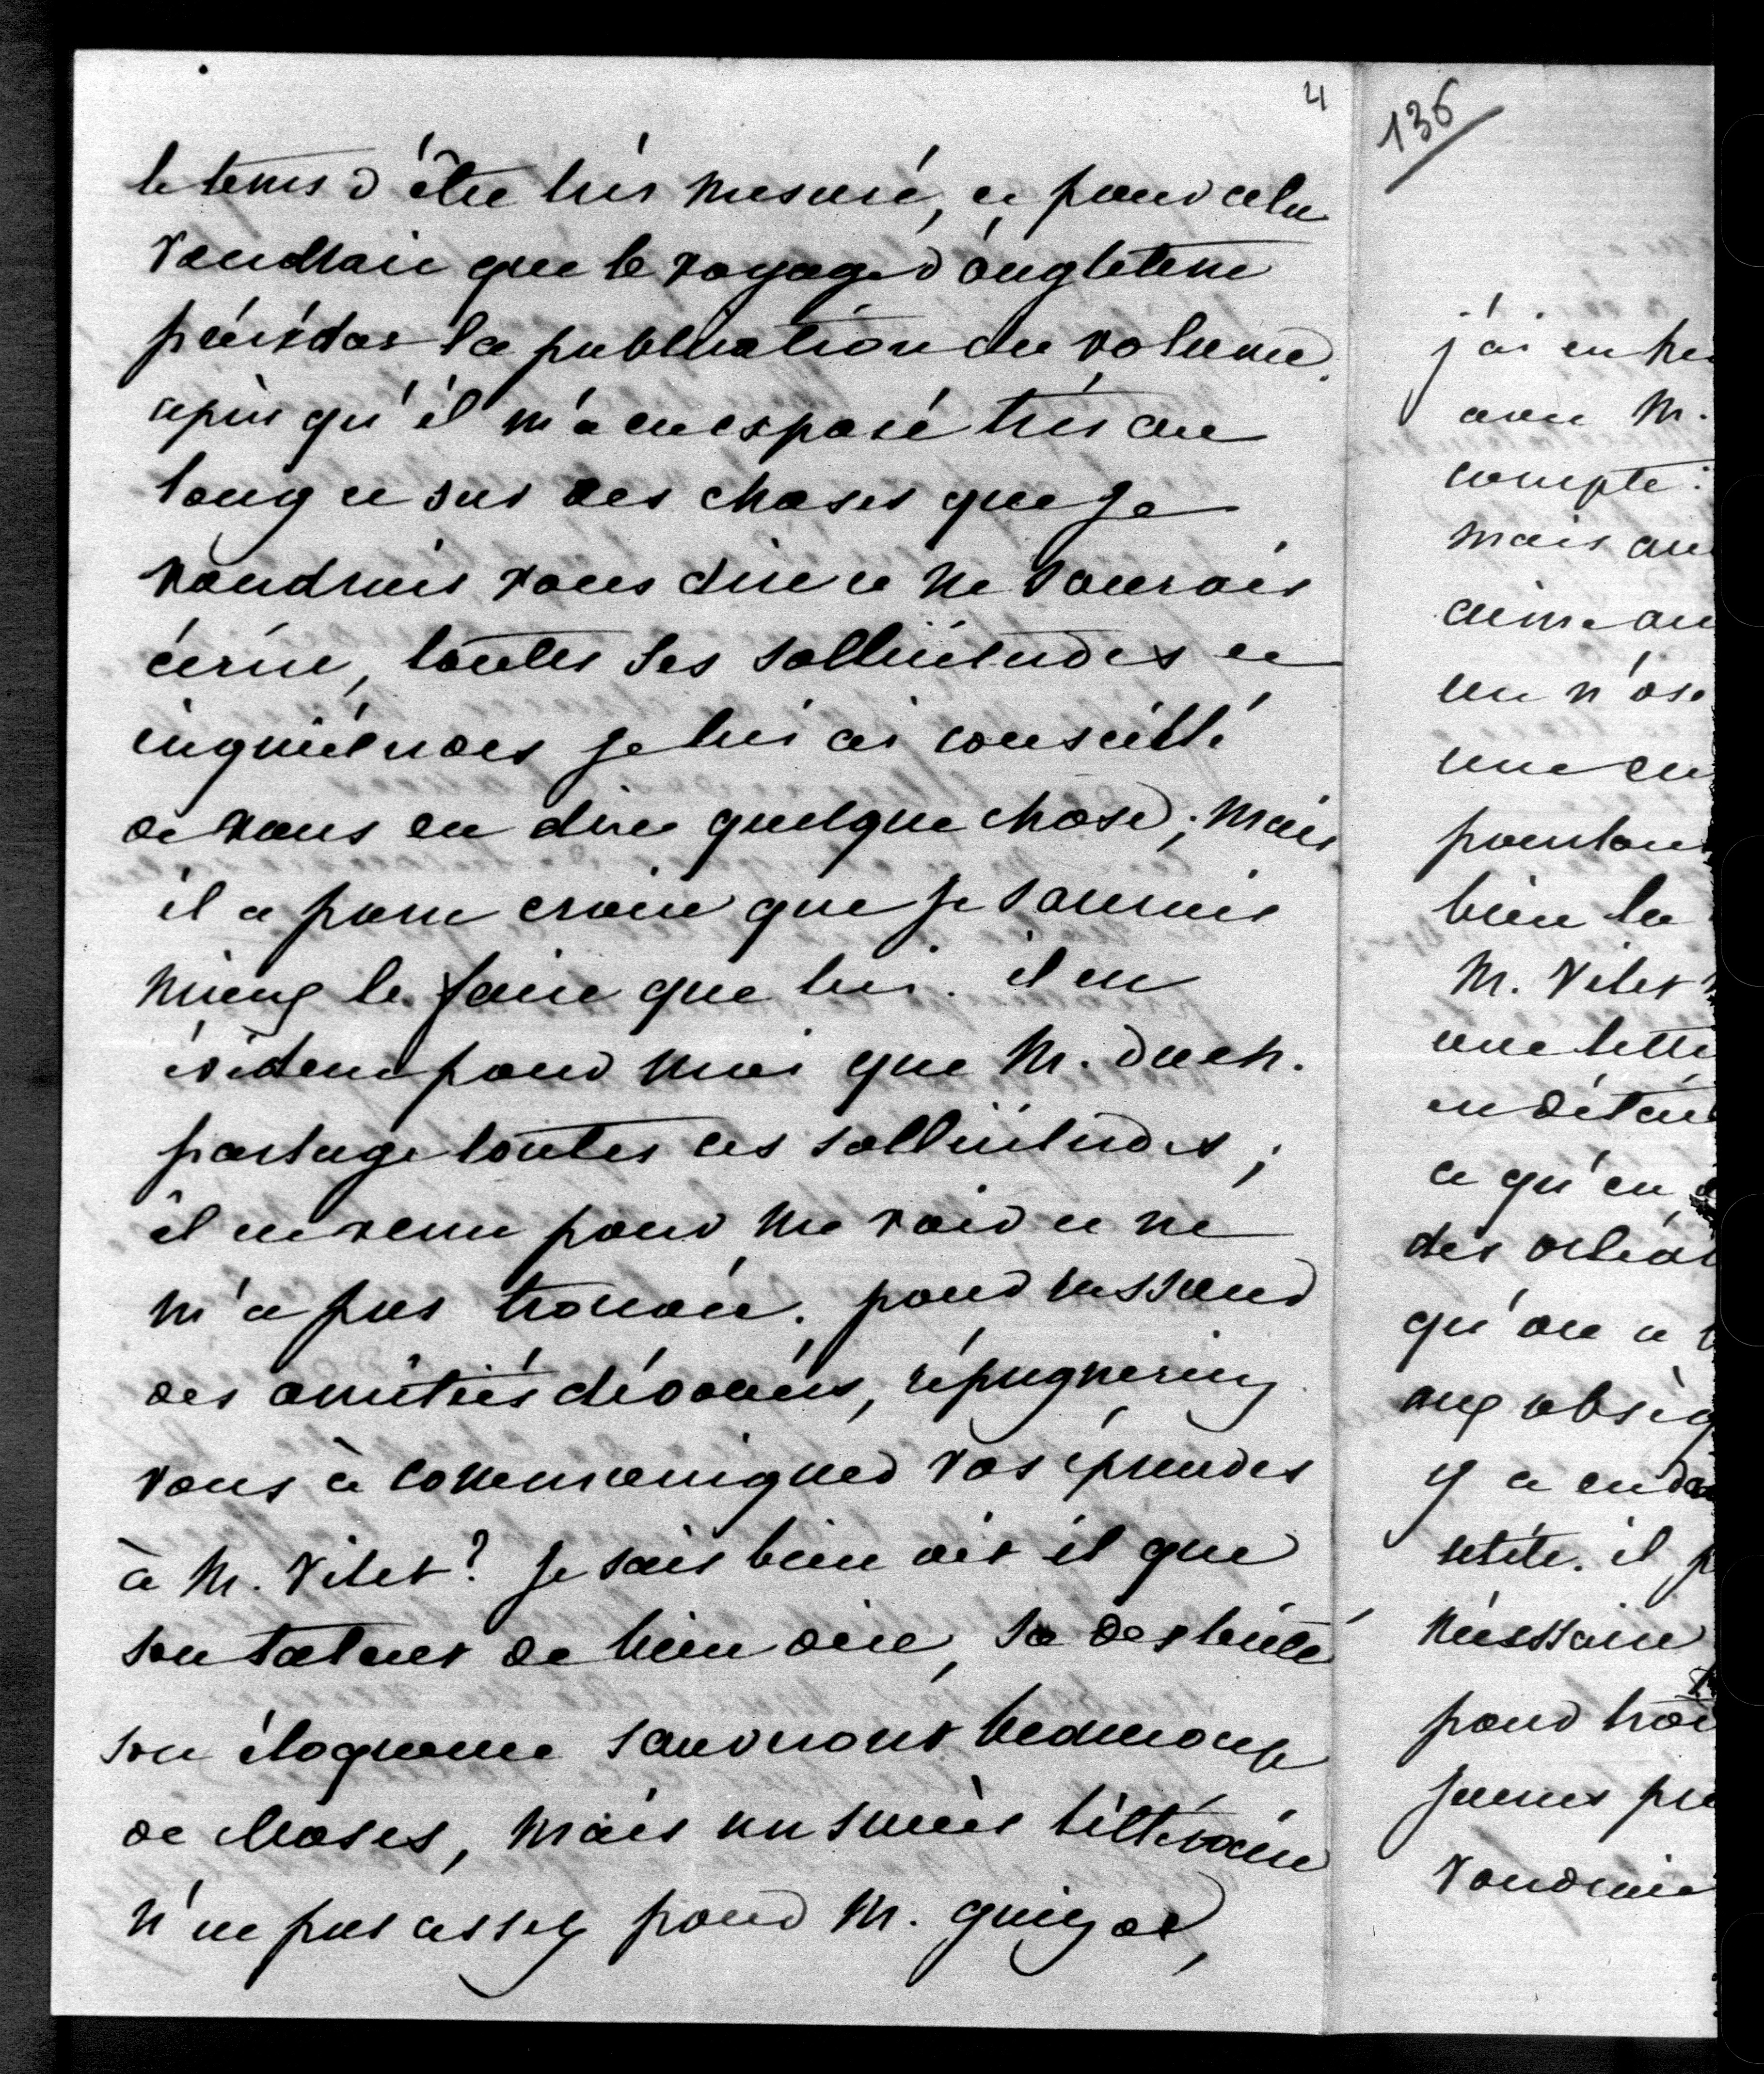 4
le tems d'être très mesuré, et pour cela
voudrait que le voyage d'angleterre
précédat la publication du volume.
après qu'il m'a eu exposé très au
long et sur des choses que je
voudrais vous dire et ne saurais
écrire, toutes ses sollicitudes et
inquiétudes je lui ai conseillé
de vous en dire quelque chose; mais
il a paru croire que je saurais
mieux le faire que lui. il est
évident pour moi que M. duch.
partage toutes ces sollicitudes;
il est venu pour me voir et ne
m'a pas trouvée. pour rassurer
des amitiés dévouées, répugneriez
vous à communiquer vos épreuves
à M. Vitet? je sais bien dit il que
son talent de bien dire, sa dextérité
son éloquence sauveront beaucoup
de choses, mais un succès littéraire
n'est pas assez pour M. guizot,
136
j'ai eu
avec M.
compte:
mais
aime
un n'ose
une
pourtant
bien la
M. Vitet
une lettre
en détail
ce qu'en
des
qu'on a
aux obsèq
y a
petite. il
nécessaire
pour
jeunes
voudrais